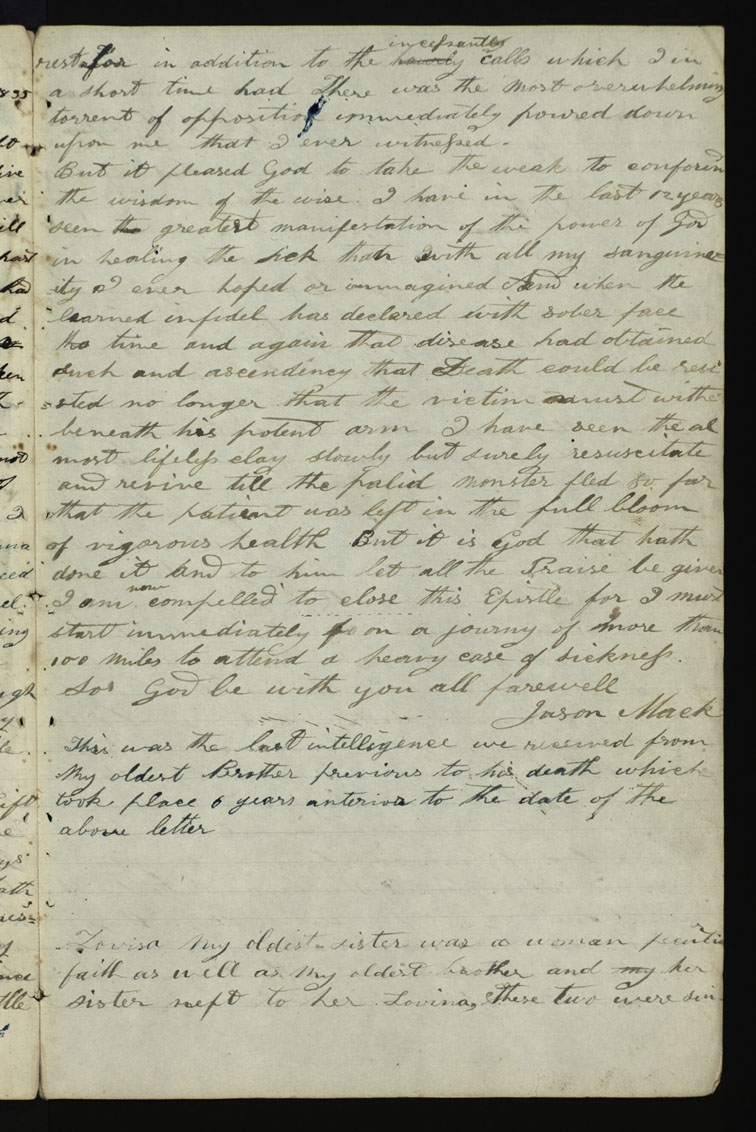 rest for in addition to the incessantly calls which I in
a short time had There was the most overwhelming
torrent of opposition immediately poured down
upon me that I ever witnessed.
But it pleased God to take the weak to confound
the wisdom of the wise. I have in the last 12 years
seen the greatest manifestation of the power of God
in healing the sick that with all my sanguine
ity I ever hoped or immagined And when the
learned infidel has declared with sober face
time and again that disease had obtained
such and ascendency that Death could be resi
sted no longer that the victim must withe
beneath his potent arm I have seen the al
most lifeless clay slowly but surely resuscitate
and revive till the palid monster fled so far
that the patient was left in the full bloom
of vigorous health But it is God that hath
done it And to him let all the Praise be given
I am now compelled to close this Epistle for I must
start immediately on a journy of more than
100 miles to attend a heavy case of sickness.
So God be with you all farewell
Jason Mack
This was the last intelligence we received from
My oldest Brother previous to his death which
took place 6 years anterior to the date of the
above letter
Lovisa My oldest sister was a woman
faith as well as my oldest brother and my her
sister nept to her Lovina, these two were sin